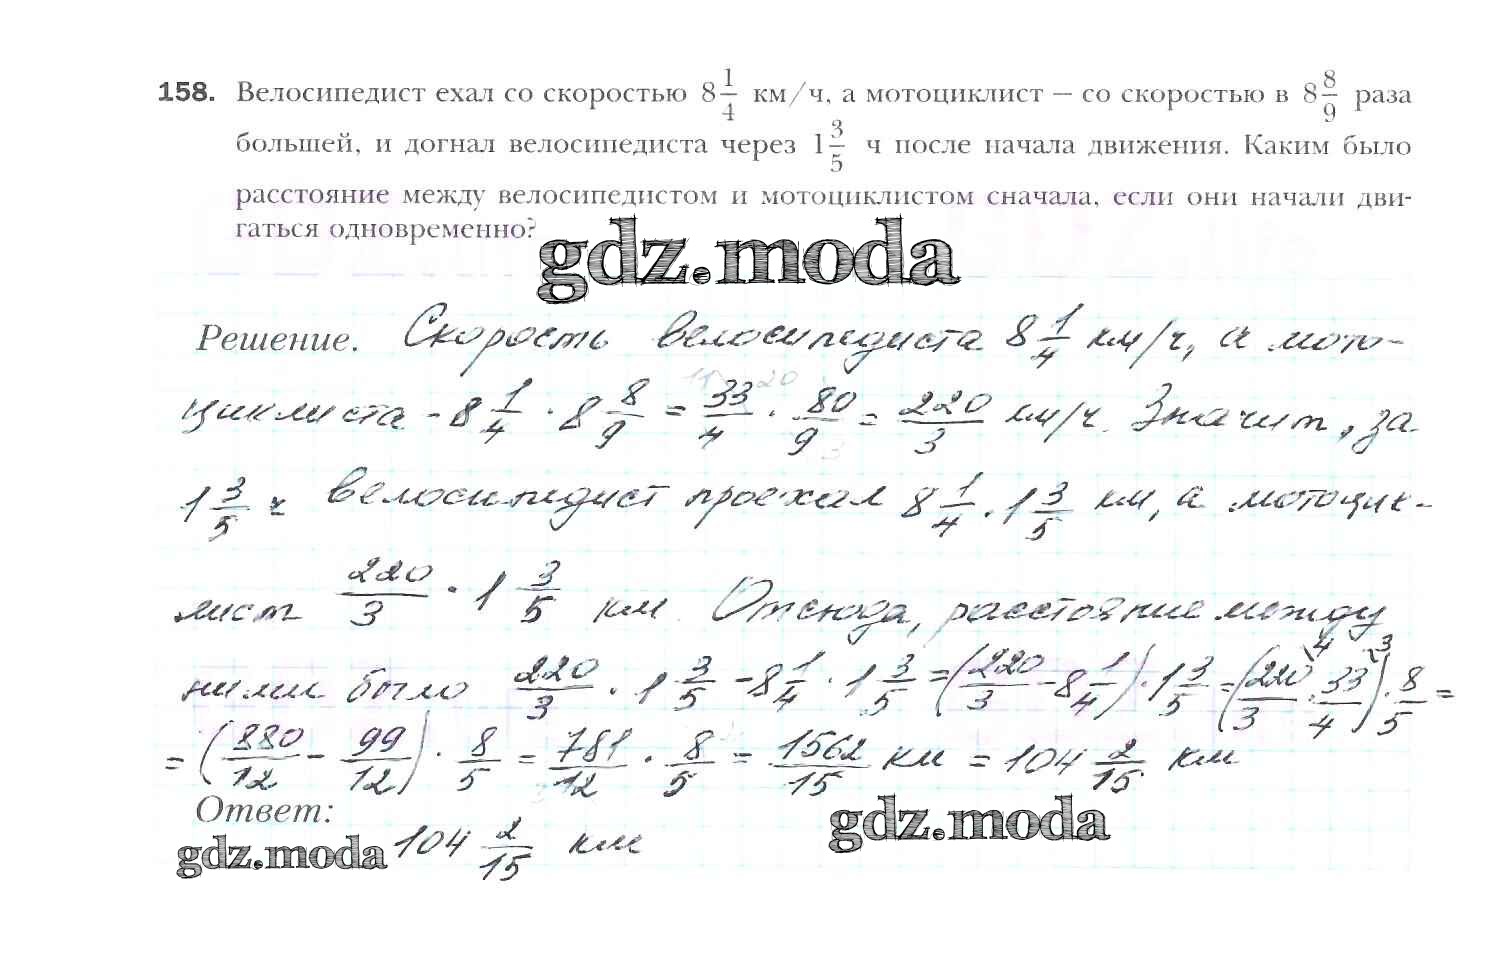 158. Велосипедист ехал со скоростью 8 1/4 км/ч, а мотоциклист – со скоростью в 8 8/9 раза
большей, и догнал велосипедиста через 1 3/5 ч после начала движения. Каким было
расстояние между велосипедистом и мотоциклистом сначала, если они начали дви-
гаться одновременно?
gdz.moda
Решение. Скорость велосипедиста 8 1/4 км/ч, а мото-
циклиста - 8 1/4 · 8 8/9 = 33/4 · 80/9 = 220/3 км/ч. Значит, за
1 3/5 ч велосипедист проехал 8 1/4 · 1 3/5 км, а мотоцик-
лист 220/3 · 1 3/5 км. Отсюда, расстояние между
ними было 220/3 · 1 3/5 - 8 1/4 · 1 3/5 = (220/3 - 8 1/4) · 1 3/5 = (220/3 · 33/4) · 8/5 =
= (880/12 - 99/12) · 8/5 = 781/12 · 8/5 = 1562/15 км = 104 2/15 км
Ответ:
gdz.moda 104 2/15 км
gdz.moda